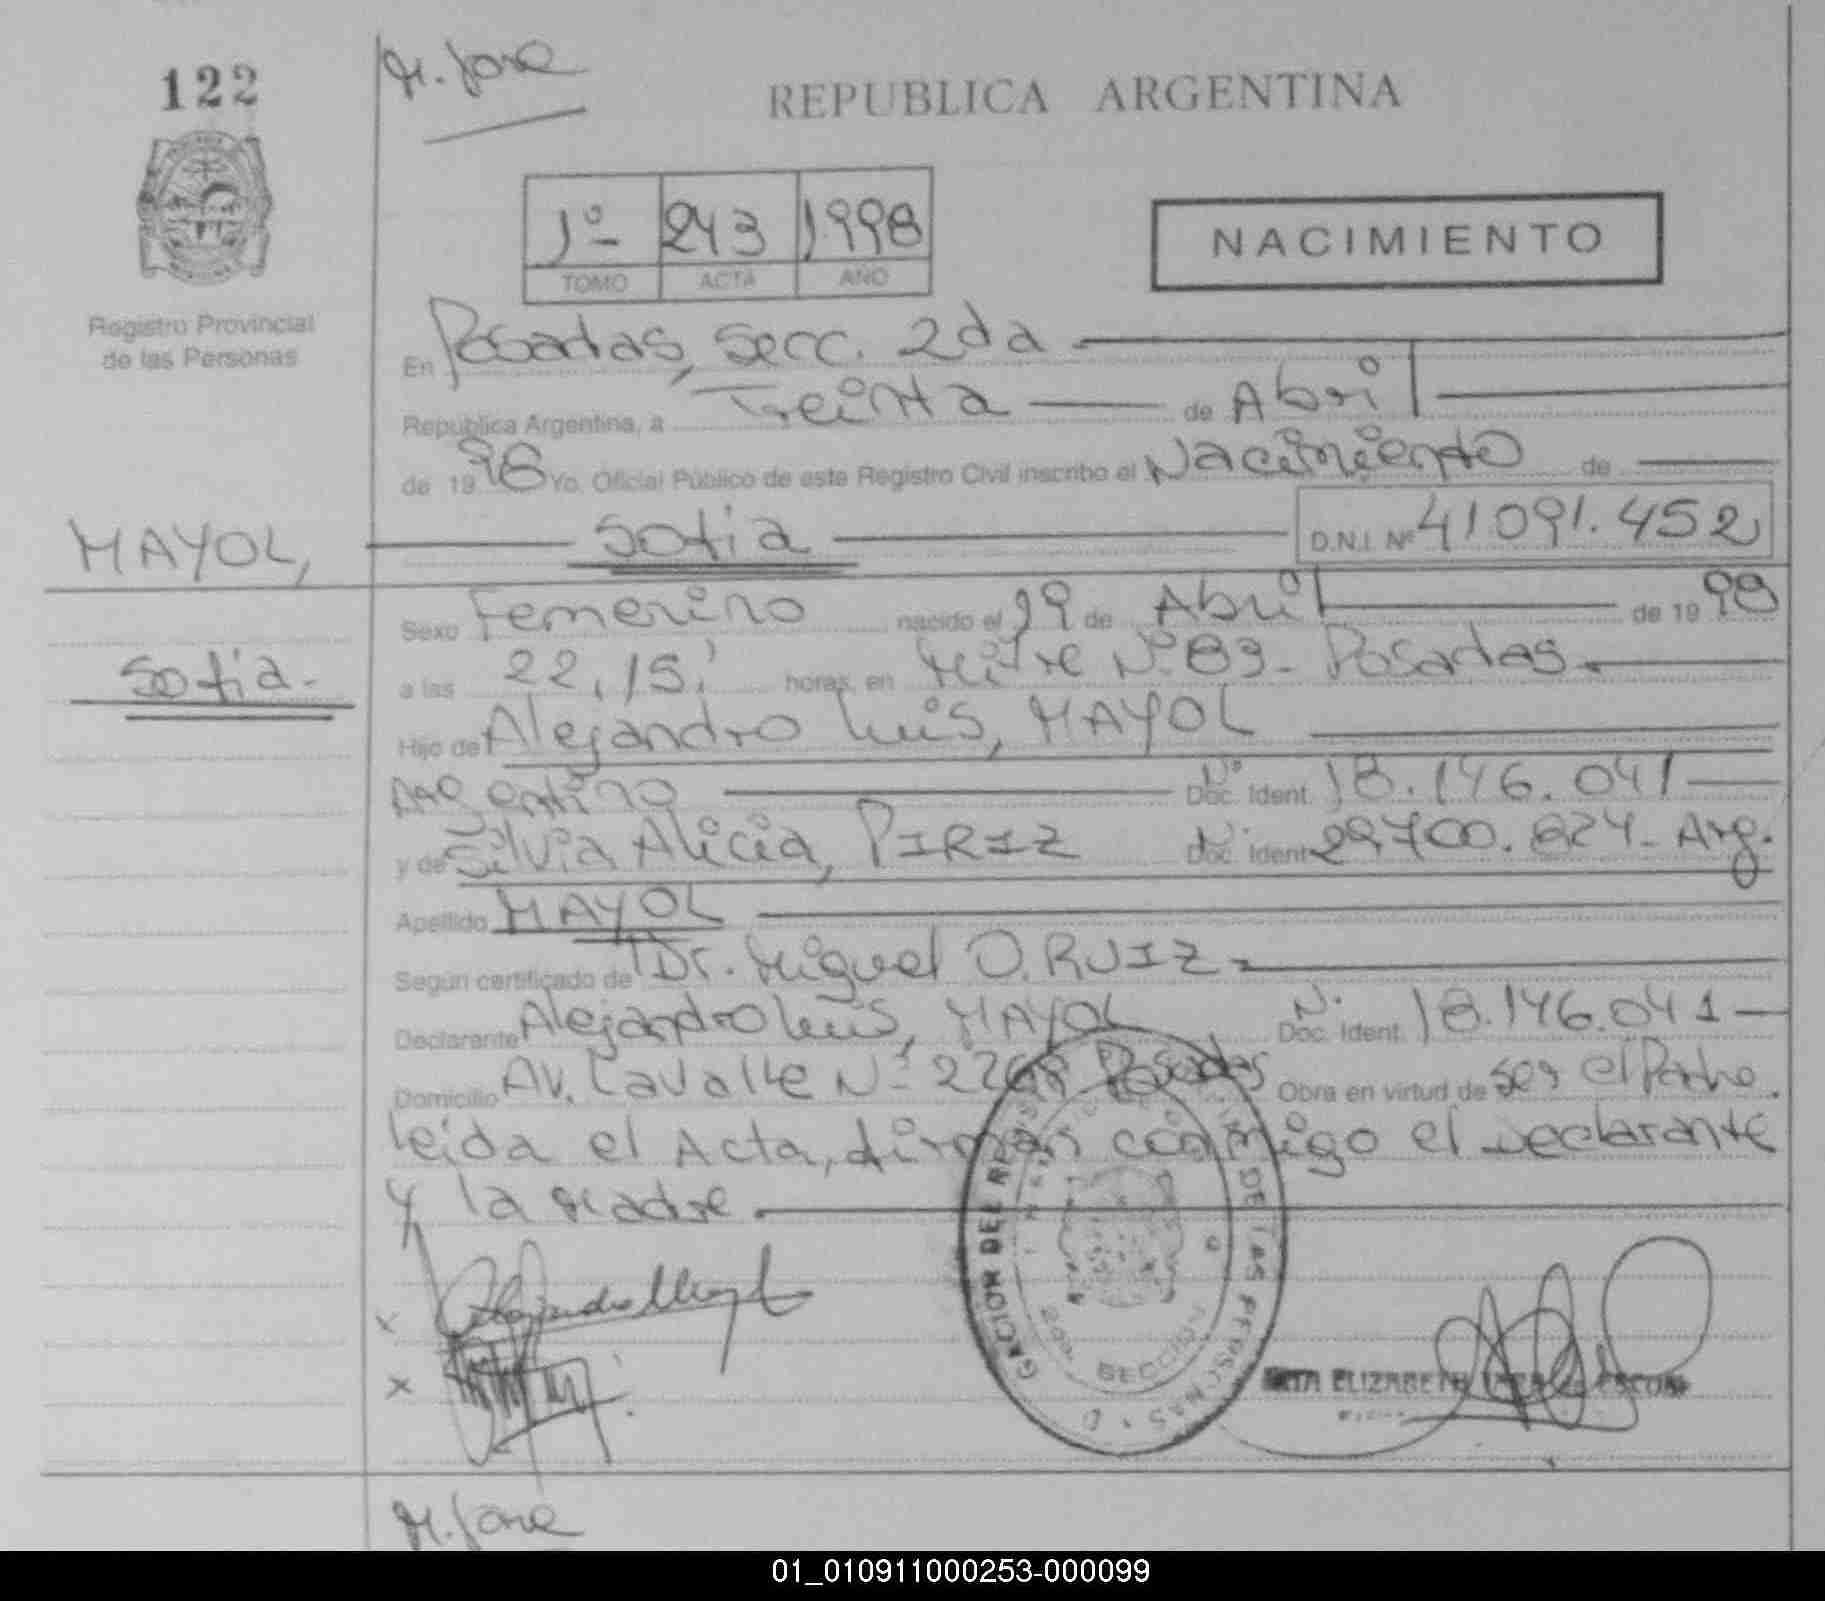 122
M. José
REPUBLICA ARGENTINA
1º 243 1998
TOMO ACTA AÑO
NACIMIENTO
Registro Provincial
de las Personas
En Posadas, secc. 2da
República Argentina, a Treinta de Abril
de 1998 Yo. Oficial Público de este Registro Civil inscribo el Nacimiento de
MAYOL, Sofia D.N.I. Nº 41091.452
Sexo Femenino nacido el 19 de Abril de 1998
Sofia.
a las 22,15' horas, en Mitre Nº 89 - Posadas.
Hijo de Alejandro Luis, MAYOL
Argentino Nº Doc. Ident. 18.146.041
y de Silvia Alicia, PIRIZ Nº Doc. Ident. Arg.
Apellido MAYOL
Según certificado de Dr. Miguel O. RUIZ
Declarante Alejandro Luis, MAYOL Nº Doc. Ident. 18.146.041
Domicilio Av. Lavalle Nº Posadas Obra en virtud de ser el Padre.
leída el Acta, firman conmigo el declarante
y la Madre.
x Alejandro Mayol
x
DE LAS PERSONAS
2da. SECCION
ELIZABETH
M. José
01_010911000253-000099